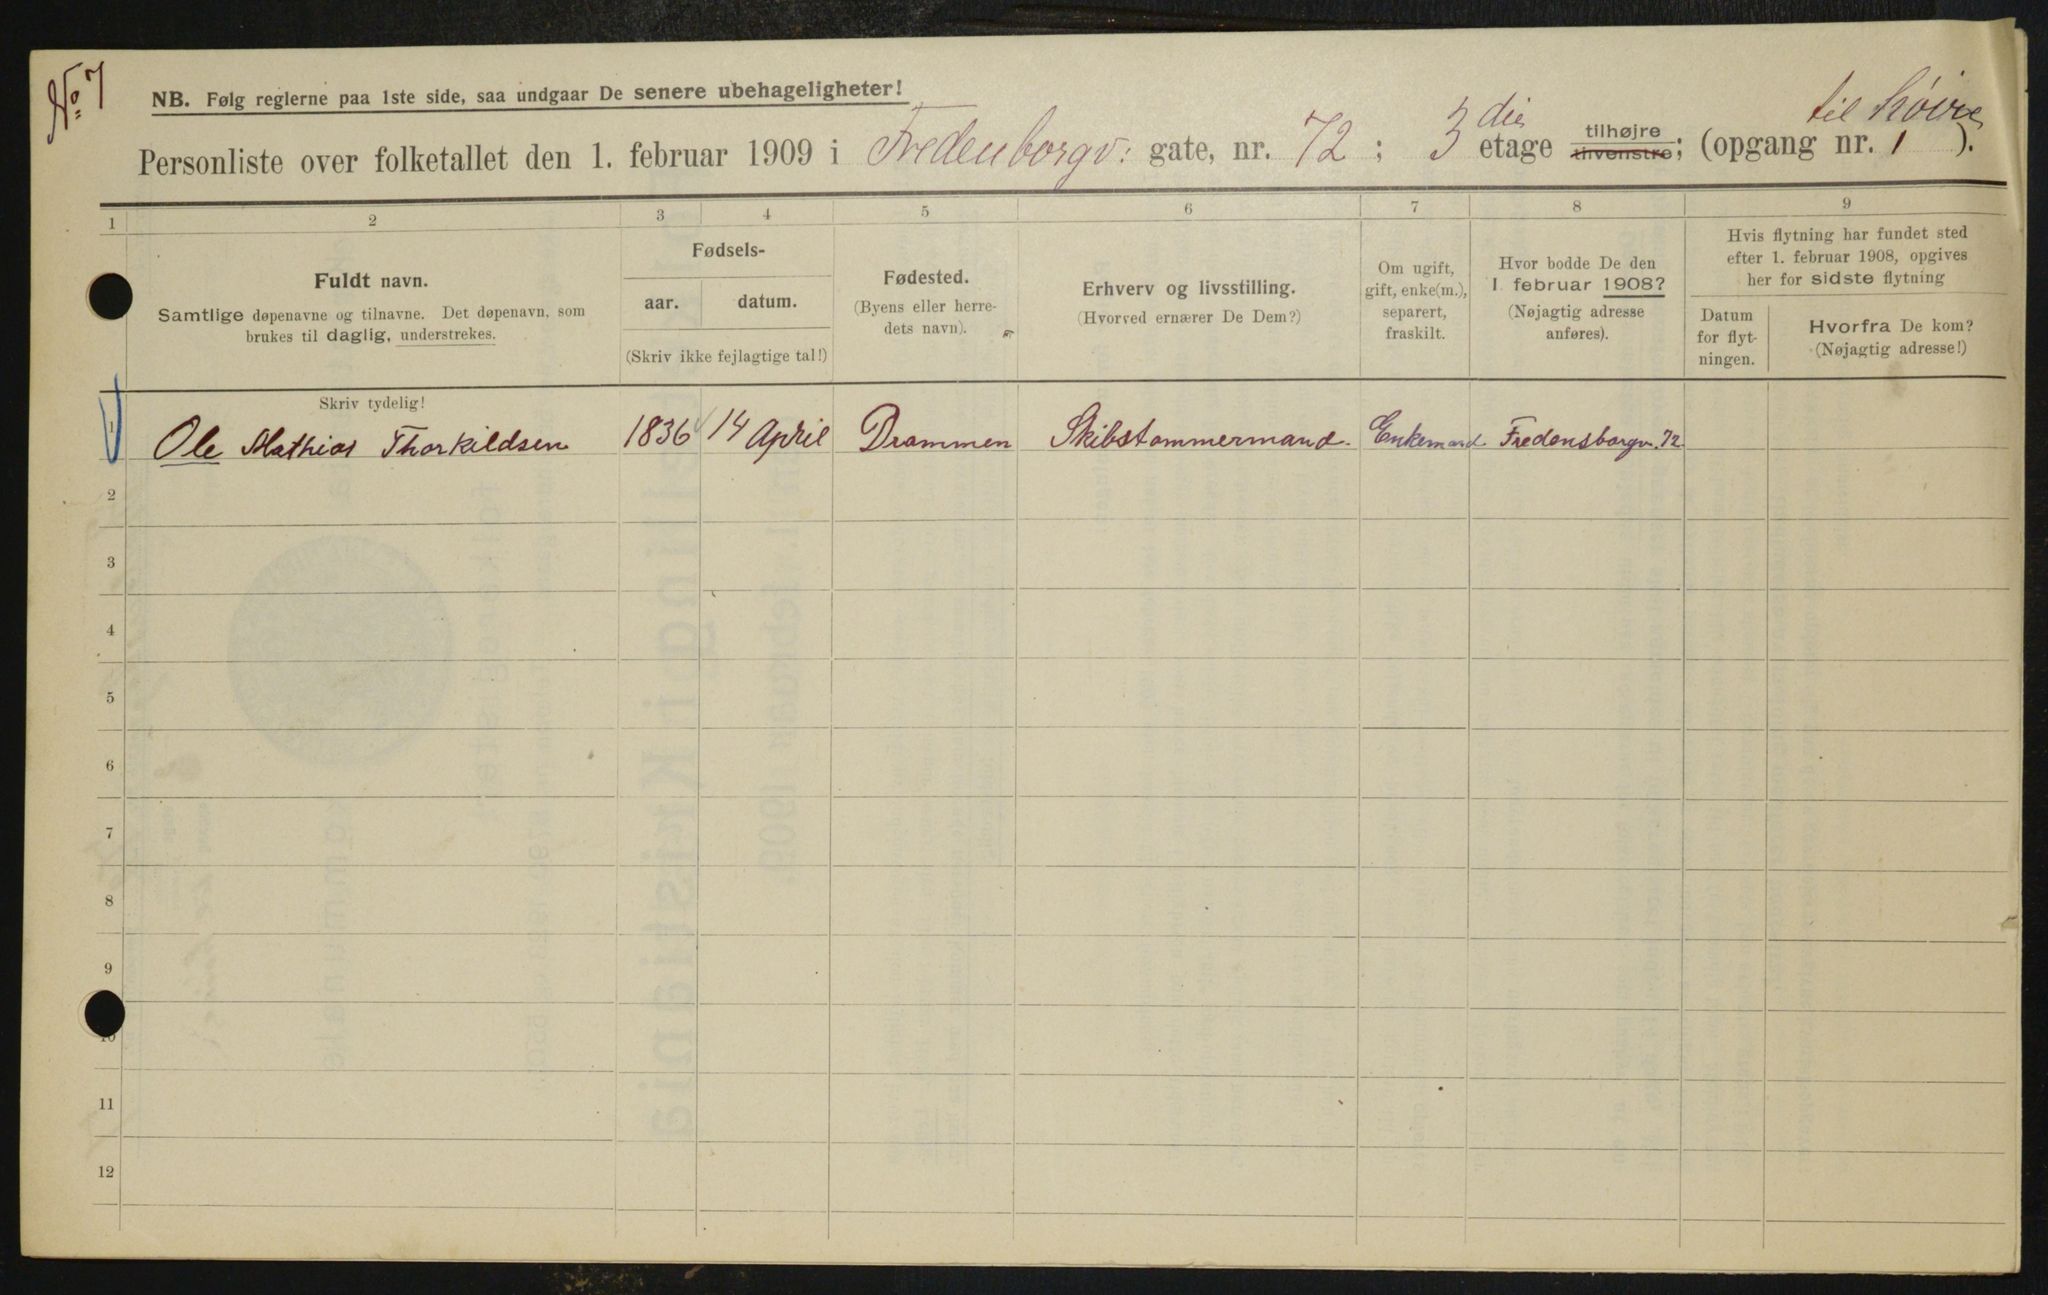 No 7
NB. Følg reglerne paa 1ste side, saa undgaar De senere ubehageligheter!
Personliste over folketallet den 1. februar 1909 i Fredenborgv: gate, nr. 72 ; 3 die etage tilhøjre tilvenstre; (opgang nr. 1 til høire ).
1 2 3 4 5 6 7 8 9
Fuldt navn.
Samtlige døpenavne og tilnavne. Det døpenavn, som
brukes til daglig, understrekes.
Skriv tydelig!
Fødsels-
aar. datum.
(Skriv ikke fejlagtige tal!)
Fødested.
(Byens eller herre-
dets navn).
Erhverv og livsstilling.
(Hvorved ernærer De Dem?)
Om ugift,
gift, enke(m.),
separert,
fraskilt.
Hvor bodde De den
1. februar 1908?
(Nøjagtig adresse
anføres).
Hvis flytning har fundet sted
efter 1. februar 1908, opgives
her for sidste flytning
Datum
for flyt-
ningen.
Hvorfra De kom?
(Nøjagtig adresse!)
1 Ole Mathias Thorkildsen 1836 14 April Drammen Skibstømmermand. Enkemand Fredensborgv. 72
2
3
4
5
6
7
8
9
10
11
12